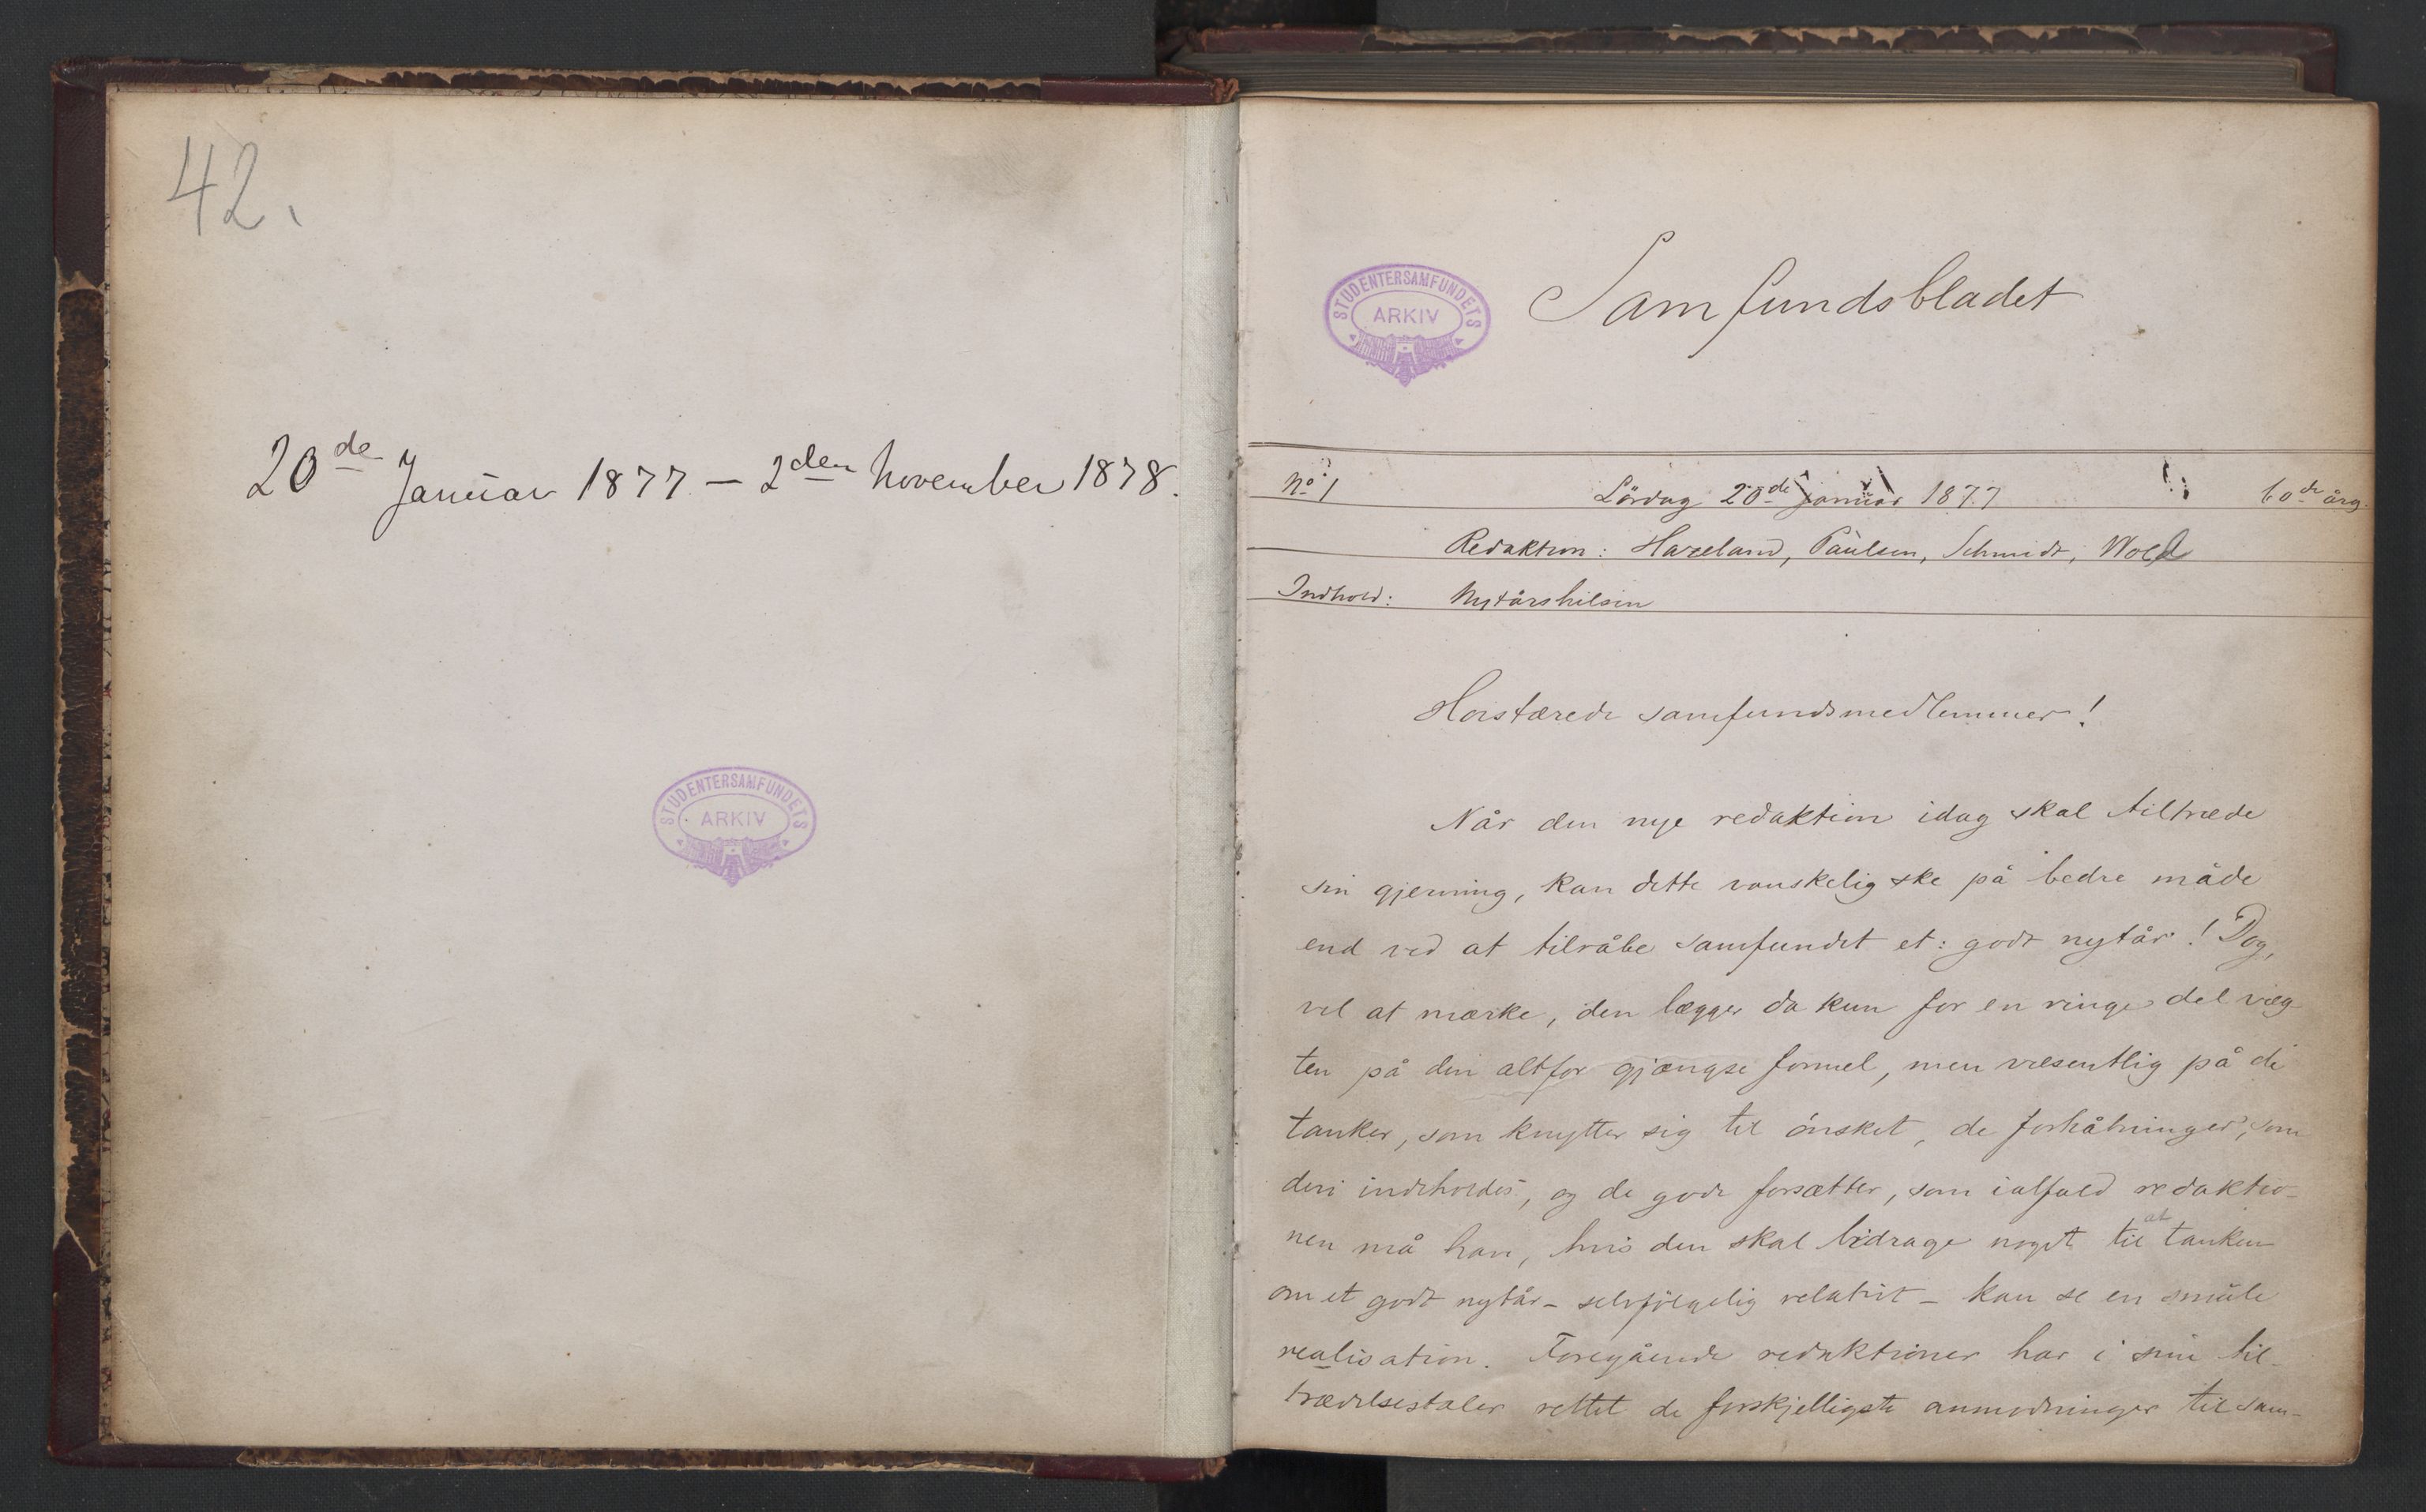 42.
20de Januar 1877 – 2den November 1878.
STUDENTERSAMFUNDETS
ARKIV
STUDENTERSAMFUNDETS
ARKIV
Samfundsbladet
No 1 Lördag 20de januar 1877 60de årg.
Redaktion: Hazeland, Paulsen, Schmidt, Wold
Indhold: Nytårshilsen
Höistærede samfundsmedlemmer!
Når den nye redaktion idag skal tiltræde
sin gjerning, kan dette vanskelig ske på bedre måde
end ved at tilråbe samfundet et: godt nytår! Dog,
vel at mærke, den lægger da kun for en ringe del væg
ten på den altfor gjængse formel, men væsentlig på de
tanker, som knytter sig til ønsket, de forhåbninger, som
deri indeholdes, og de gode forsætter, som ialfald redaktio-
nen må have, hvis den skal bidrage noget til at tanken
om et godt nytår – selvfölgelig relativt – kan se en smule
realisation. Foregående redaktioner har i sine til-
trædelsestaler rettet de forskjelligste anmodninger til sam-